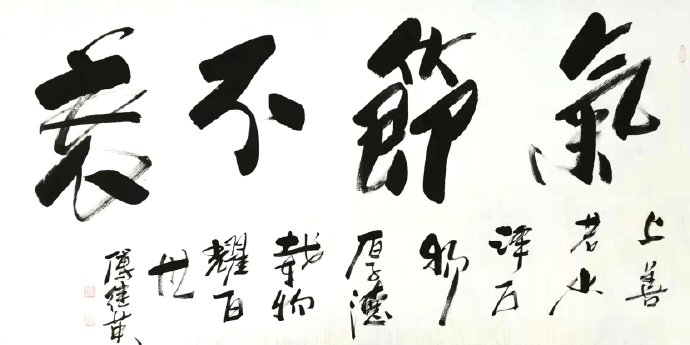 氣節不衰
上善
若水
泽万
物
厚德
載物
耀百
世
傅继英